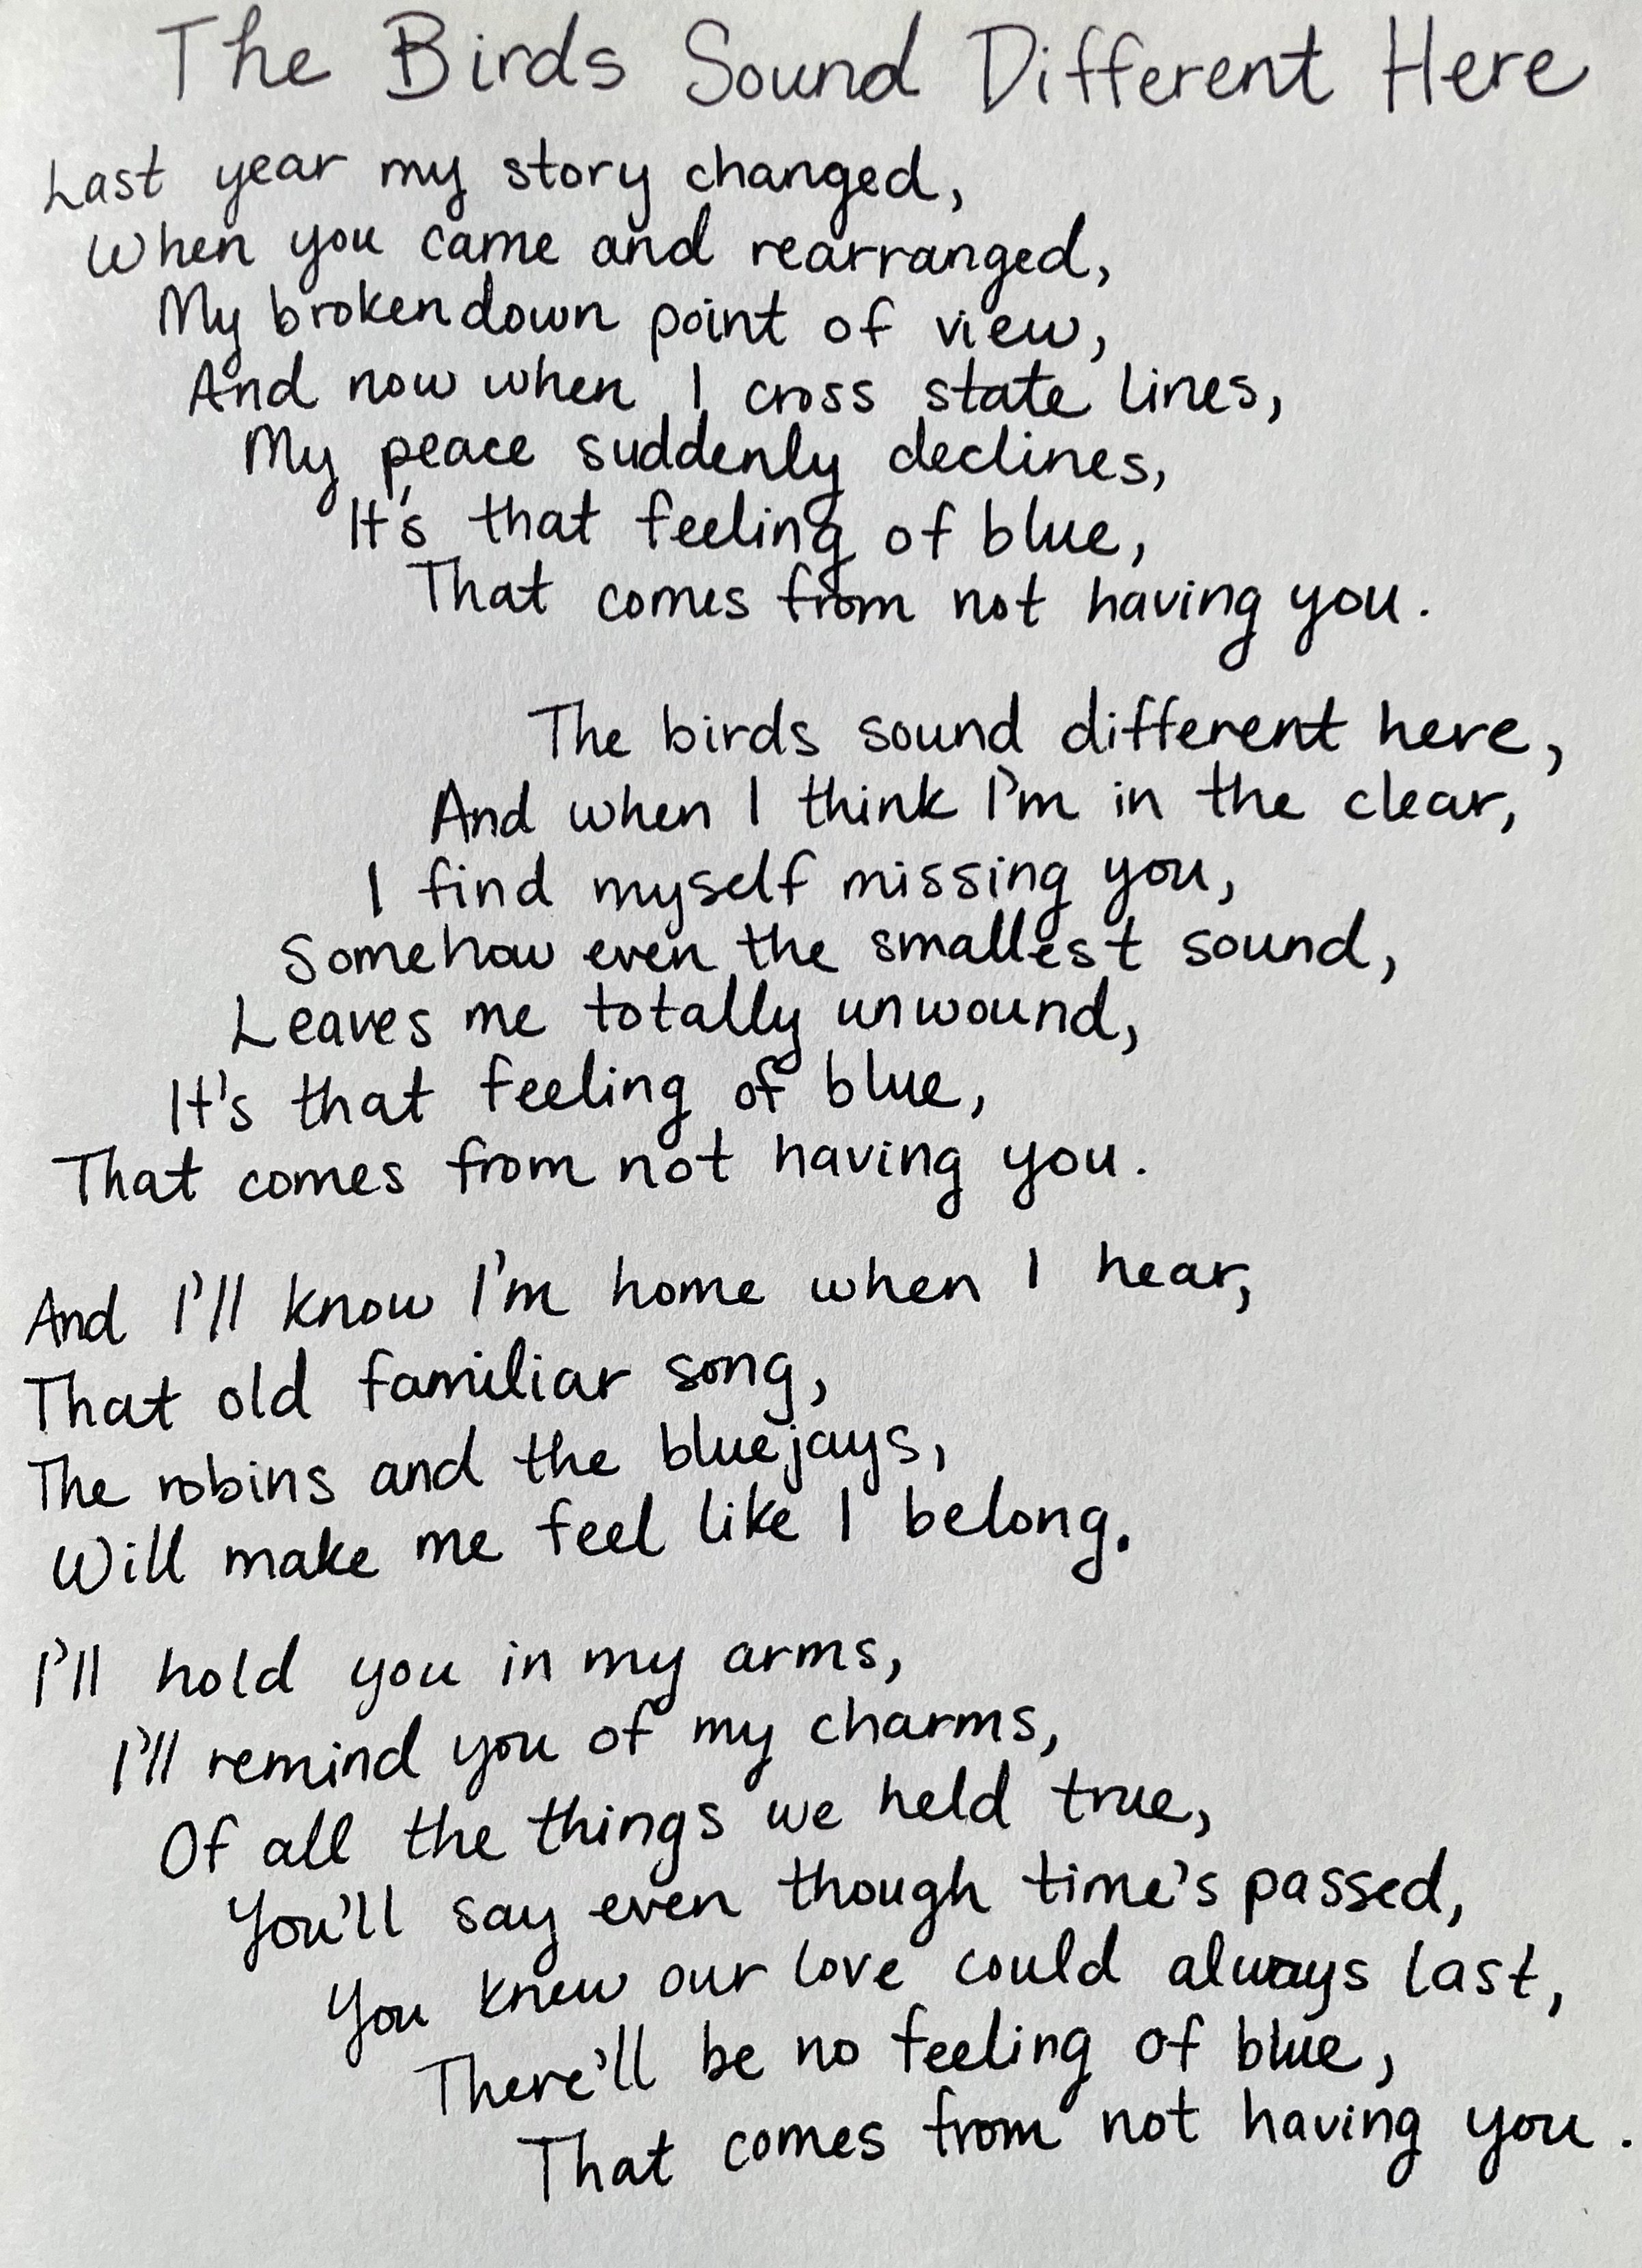 The Birds Sound Different Here
Last year my story changed,
When you came and rearranged,
My brokendown point of view,
And now when I cross state lines,
My peace suddenly declines,
It's that feeling of blue,
That comes from not having you.
The birds sound different here,
And when I think I'm in the clear,
I find myself missing you,
Somehow even the smallest sound,
Leaves me totally unwound,
It's that feeling of blue,
That comes from not having you.
And I'll know I'm home when I hear,
That old familiar song,
The robins and the bluejays,
Will make me feel like I belong.
I'll hold you in my arms,
I'll remind you of my charms,
Of all the things we held true,
You'll say even though time's passed,
You knew our love could always last,
There'll be no feeling of blue,
That comes from not having you.